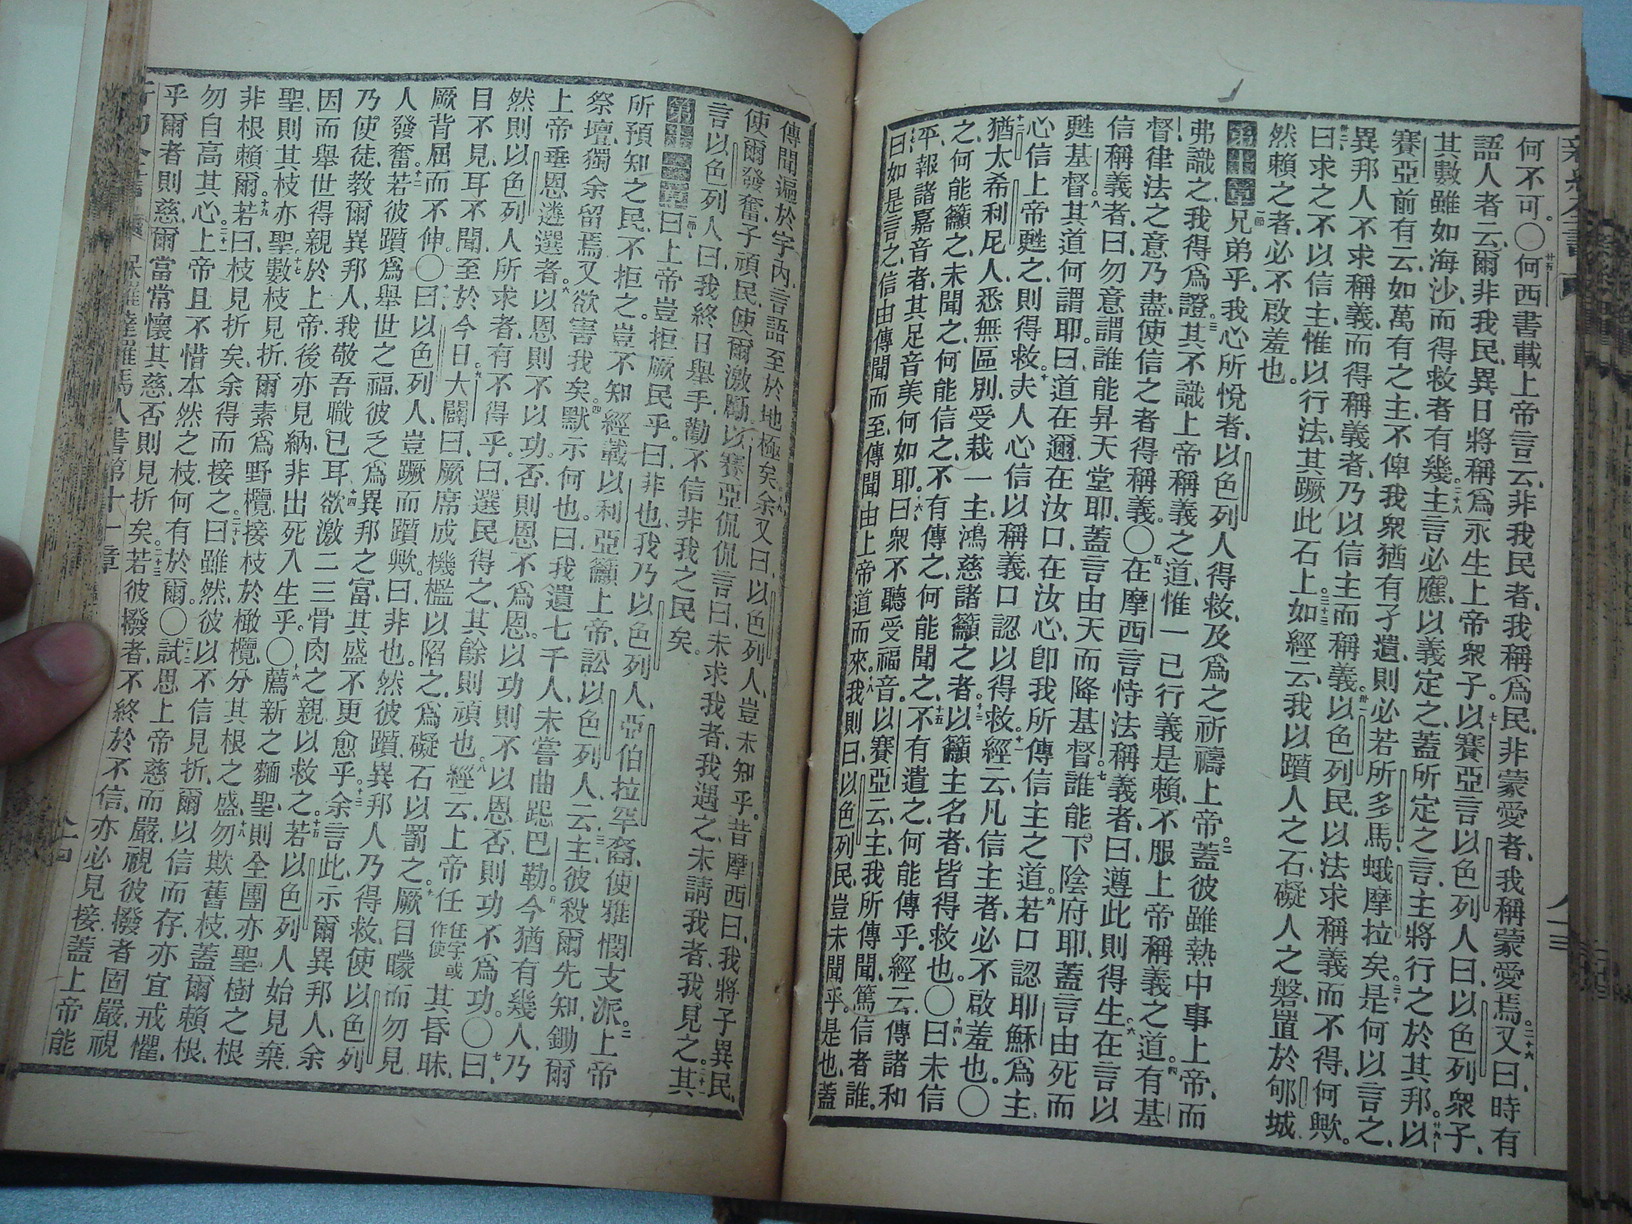 何不可。〇何西書載上帝言云、非我民者、我稱爲民、非蒙愛者、我稱蒙愛焉。又曰、時有
語人者云、爾非我民、異日將稱爲永生上帝衆子。以賽亞言以色列人曰、以色列衆子、
其數雖如海沙、而得救者有幾、主言必應、以義定之、蓋所定之言、主將行之於其邦。以
賽亞前有云、如萬有之主、不俾我衆猶有孑遺、則必若所多馬、蛾摩拉矣。是何以言之、
異邦人不求稱義、而得稱義者、乃以信主而稱義。以色列民、以法求稱義而不得、何歟。
曰、求之不以信主、惟以行法、其蹶此石上。如經云、我以躓人之石、礙人之磐、置於郇城、
然賴之者、必不啟羞也。
第十章 兄弟乎、我心所悅者、以色列人得救、及爲之祈禱上帝。蓋彼雖熱中事上帝、而
弗識之、我得爲證。其不識上帝稱義之道、惟一己行義是賴、不服上帝稱義之道。有基
督、律法之意乃盡、使信之者得稱義。〇在摩西言恃法稱義者、曰、遵此則得生。在言以
信稱義者、曰、勿意謂誰能昇天堂耶、蓋言由天而降基督。誰能下陰府耶、蓋言由死而
甦基督。其道何謂耶、曰、道在邇、在汝口、在汝心、卽我所傳信主之道。若口認耶穌爲主、
心信上帝甦之、則得救。夫人心信以稱義、口認以得救。經云、凡信主者、必不啟羞也。〇
猶太希利尼人、悉無區別、受栽一主、鴻慈諸籲之者。以籲主名者、皆得救也。〇曰、未信
之、何能籲之、未聞之、何能信之、不有傳之、何能聞之。不有遣之、何能傳乎。經云、傳諸和
平、報諸嘉音者、其足音美何如耶。曰、衆不聽受福音。以賽亞云、主、我所傳聞、篤信者誰。
曰、如是言之、信由傳聞而至、傳聞由上帝道而來。我則曰、以色列民、豈未聞乎。是也、蓋
傳聞遍於宇內、言語至於地極矣。余又曰、以色列人、豈未知乎。昔摩西曰、我將子異民、
使爾發奮、子頑民、使爾激勵。以賽亞侃侃言曰、未求我者、我遇之、未請我者、我見之。其
言以色列人曰、我終日舉手、勸不信非我之民矣。
第十一章 曰、上帝豈拒厥民乎。曰、非也、我乃以色列人、亞伯拉罕裔、便雅憫支派。上帝
所預知之民、不拒之、豈不知經載以利亞籲上帝、訟以色列人云、主、彼殺爾先知、鋤爾
祭壇、獨余留焉、又欲害我矣。默示何也。曰、我遺七千人、未嘗曲跽巴勒。今猶有幾人、乃
上帝垂恩遴選者。以恩則不以功、否則恩不爲恩。以功則不以恩、否則功不爲功。〇曰、
然則以色列人所求者、有不得乎。曰、選民得之、其餘則頑也。經云、上帝任任字或作使其昏昧、
目不見、耳不聞、至於今日。大闢曰、厥席成機檻以陷之、爲礙石以罰之。厥目矇而勿見、
厥背屈而不伸。〇曰、以色列人、豈蹶而躓歟。曰、非也、然彼躓、異邦人乃得救、使以色列
人發奮。若彼躓爲舉世之福、彼乏爲異邦之富、其盛不更愈乎。余言此、示爾異邦人、余
乃使徒、教爾異邦人、我敬吾職、已耳、欲激二三骨肉之親以救之。若以色列人始見棄、
因而舉世得親於上帝、後亦見納、非出死入生乎。〇薦新之麵聖、則全團亦聖、樹之根
聖、則其枝亦聖。數枝見折、爾素爲野欖、接枝於橄欖、分其根之盛、勿欺舊枝、蓋爾賴根、
非根賴爾。若曰、枝見折矣、余得而接之、曰、雖然、彼以不信見折、爾以信而存、亦宜戒懼、
勿自高其心。上帝且不惜本然之枝、何有於爾。〇試思上帝慈而嚴、視彼撥者固嚴、視
乎爾者則慈、爾當常懷其慈、否則見折矣。若彼撥者、不終於不信、亦必見接、蓋上帝能
保羅達羅馬人書第十一章